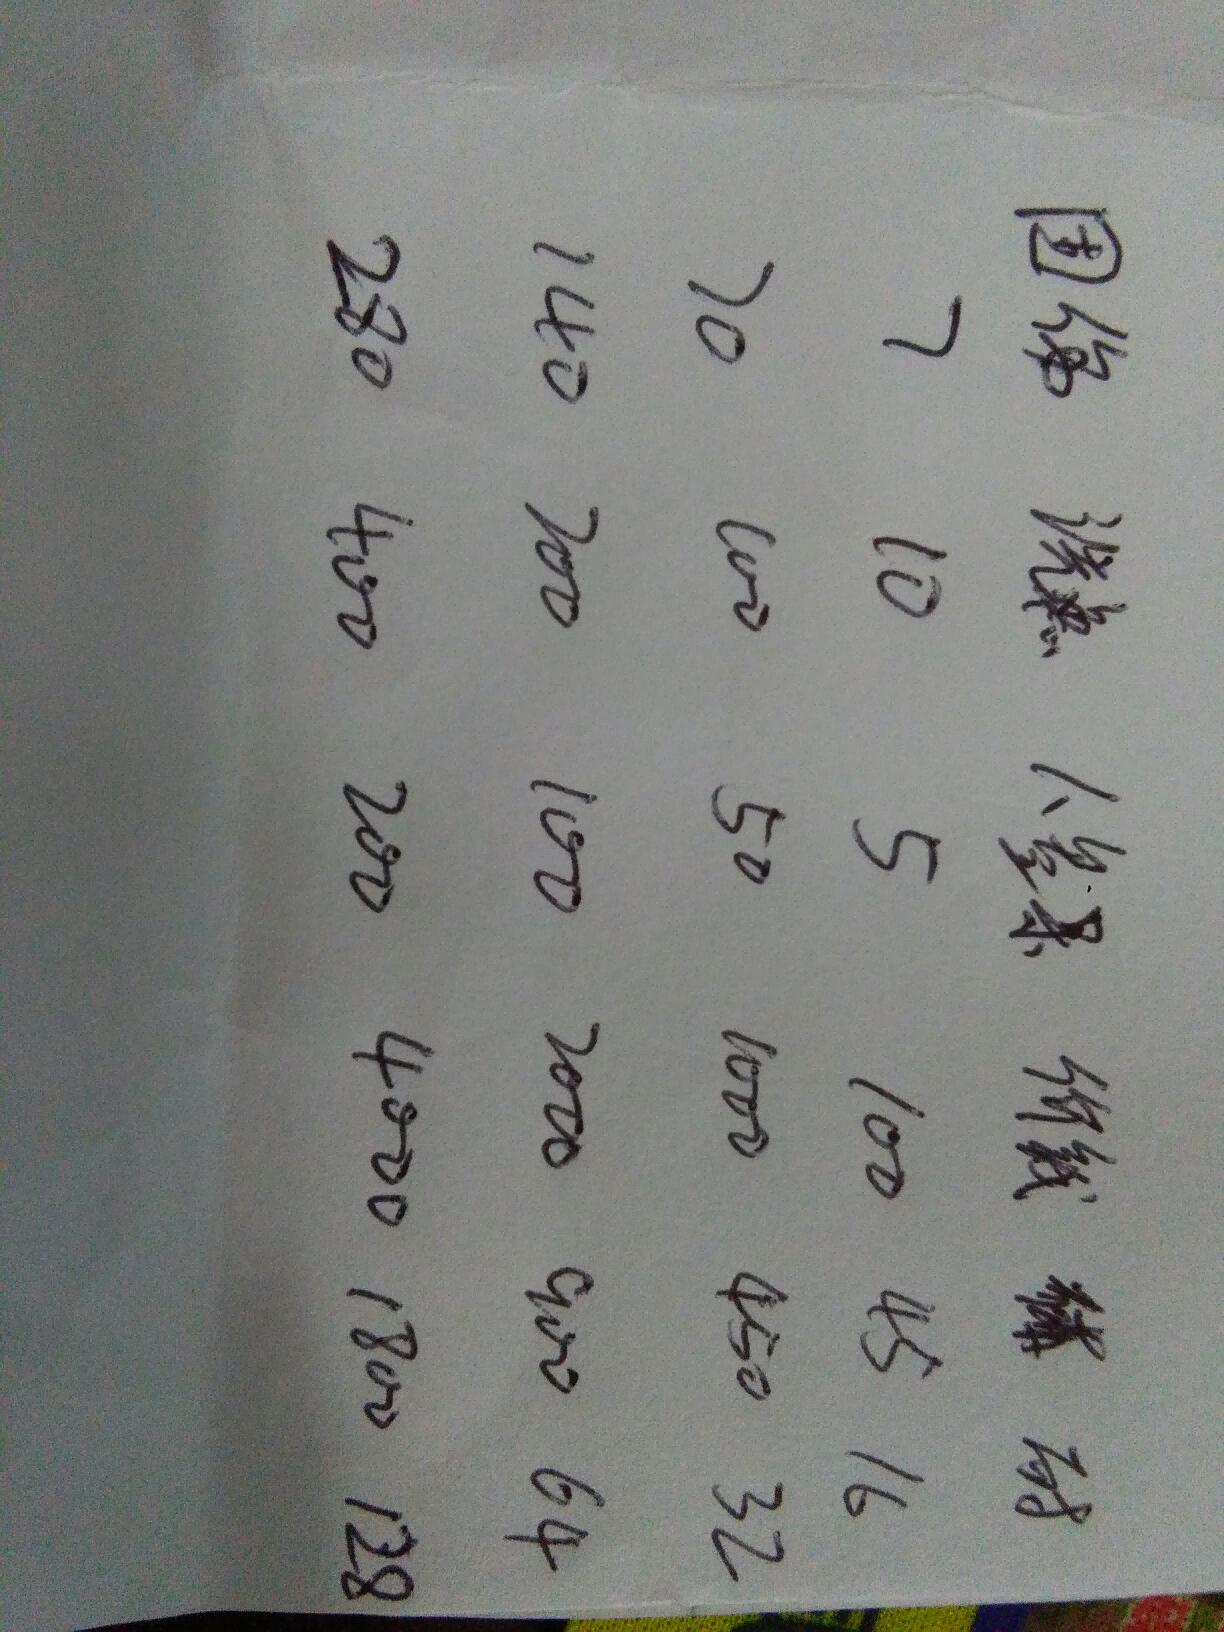 价钱
7 10 5 100 45 16
70 100 50 1000 450 32
140 200 100 2000 900 64
280 400 200 4000 1800 128